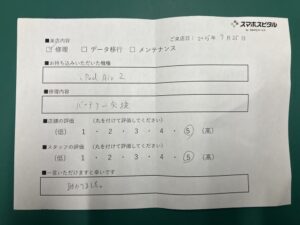 スマホスピタル
■来店内容
ご来店日：2025年 7月 25日
☑ 修理 □ データ移行 □ メンテナンス
■お持ち込みいただいた機種
iPad Air 2
■修理内容
バッテリー交換
■店舗の評価 (丸を付けて評価してください)
(低) 1 ・ 2 ・ 3 ・ 4 ・ 5 (高)
■スタッフの評価 (丸を付けて評価してください)
(低) 1 ・ 2 ・ 3 ・ 4 ・ 5 (高)
■一言いただけますと幸いです
助かりました。